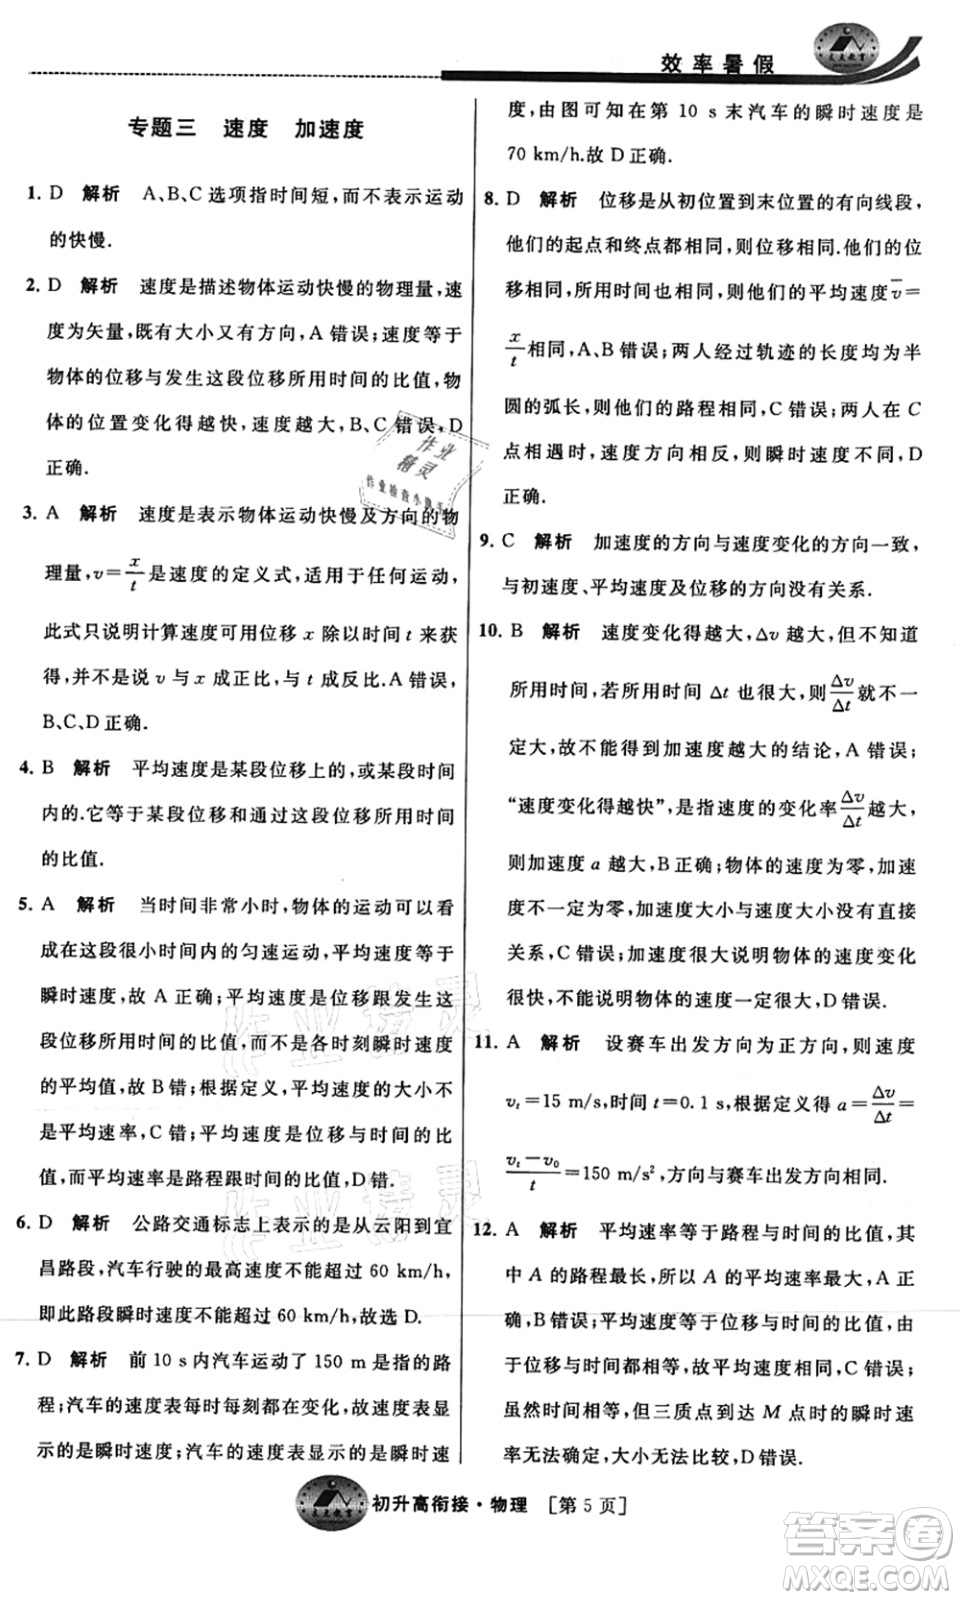 效率暑假
专题三 速度 加速度
1. D 解析 A、B、C选项指时间短,而不表示运动
的快慢.
2. D 解析 速度是描述物体运动快慢的物理量,速
度为矢量,既有大小又有方向,A错误;速度等于
物体的位移与发生这段位移所用时间的比值,物
体的位置变化得越快,速度越大,B、C错误,D
正确.
3. A 解析 速度是表示物体运动快慢及方向的物
理量,v=x/t是速度的定义式,适用于任何运动,
此式只说明计算速度可用位移 x 除以时间 t 来获
得,并不是说 v 与 x 成正比,与 t 成反比.A错误,
B、C、D正确.
4. B 解析 平均速度是某段位移上的,或某段时间
内的.它等于某段位移和通过这段位移所用时间
的比值.
5. A 解析 当时间非常小时,物体的运动可以看
成在这段很小时间内的匀速运动,平均速度等于
瞬时速度,故 A 正确;平均速度是位移跟发生这
段位移所用时间的比值,而不是各时刻瞬时速度
的平均值,故B错;根据定义,平均速度的大小不
是平均速率,C错;平均速度是位移与时间的比
值,而平均速率是路程跟时间的比值,D错.
6. D 解析 公路交通标志上表示的是从云阳到宜
昌路段,汽车行驶的最高速度不能超过 60 km/h,
即此路段瞬时速度不能超过60 km/h,故选D.
7. D 解析 前 10 s内汽车运动了 150 m是指的路
程;汽车的速度表每时每刻都在变化,故速度表显
示的是瞬时速度;汽车的速度表显示的是瞬时速
度,由图可知在第 10 s 末汽车的瞬时速度是
70 km/h.故D正确.
8. D 解析 位移是从初位置到末位置的有向线段,
他们的起点和终点都相同,则位移相同,他们的位
移相同,所用时间也相同,则他们的平均速度v̄=
x/t相同,A、B错误;两人经过轨迹的长度均为半
圆的弧长,所以他们的路程相同,C错误;两人在 C
点相遇时,速度方向相反,则瞬时速度不同,D
正确.
9. C 解析 加速度的方向与速度变化的方向一致,
与初速度、平均速度及位移的方向没有关系.
10. B 解析 速度变化得越大,Δv 越大,但不知道
所用时间,若所用时间 Δt 也很大,则Δv/Δt就不一
定大,故不能得到加速度越大的结论,A错误;
“速度变化得越快”,是指速度的变化率Δv/Δt越大,
则加速度 a 越大,B正确;物体的速度为零,加速
度不一定为零,加速度大小与速度大小没有直接
关系,C错误;加速度很大说明物体的速度变化
很快,不能说明物体的速度一定很大,D错误.
11. A 解析 设赛车出发方向为正方向,则速度
vₜ=15 m/s,时间 t=0.1 s,根据定义得 a=Δv/Δt=
(vₜ-v₀)/t=150 m/s²,方向与赛车出发方向相同.
12. A 解析 平均速率等于路程与时间的比值,其
中 A 的路程最长,所以 A 的平均速率最大,A正
确,B错误;平均速度等于位移与时间的比值,由
于位移与时间都相等,故平均速度相同,C错误;
虽然时间相等,但三质点到达 M 点时的瞬时速
率无法确定,大小无法比较,D错误.
初升高衔接·物理 [第 5 页]
作业
精灵
作业精灵
作业精灵
答案圈
MXQE.COM